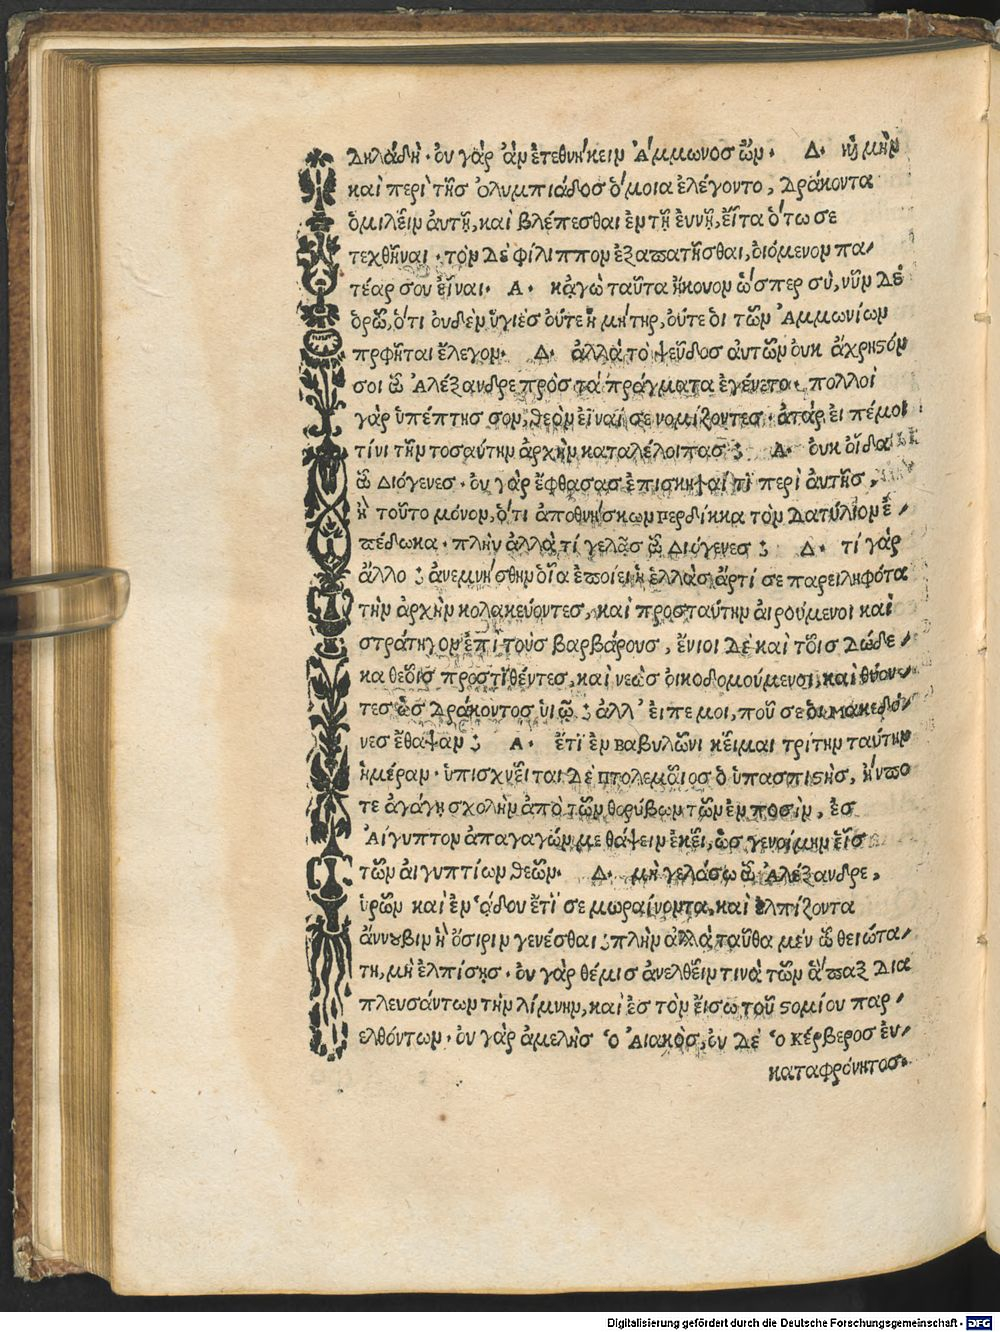 Δηλάδη· ὀυ γὰρ ἀν ἐτεθνήκειν Ἄμμωνος ὤν. Δ. κ̀ μὴν
καὶ περὶ τῆς Ὀλυμπιάδος ὅμοια ἐλέγοντο, Δράκοντα
ὁμιλεῖν ἀυτῇ, καὶ βλέπεσθαι ἐν τῇ ἐυνῇ, εἶτα ὅτω σε
τεχθῆναι. τὸν Δὲ φίλιππον ἐξαπατῆσθαι, ὀιόμενον πα-
τέαρ σου εἶναι. Α. κἀγὼ ταῦτα ἤκουον ὥσπερ σὺ, νῦν Δὲ
ὁρῶ, ὅτι ὀυδὲν ὑγιὲς ὀύτε ἡ μήτηρ, ὀύτε ὁι τῶν Ἀμμωνίων
πρφῆται ἔλεγον. Δ. ἀλλὰ τὸ ψεῦδος ἀυτῶν ὀυκ ἄχρηστόν
σοι ὦ Ἀλέξανδρε πρὸς τὰ πράγματα ἐγένετο. πολλοὶ
γὰρ ὑπέπτης σον, θεὸν ἐῖναί σε νομίζοντες. ἀτὰρ ἐι πέμοι
τίνι τὴν τοσαύτην ἀρχὴν καταλέλοιπας; Α. ὀυκ ὀῖδα
ὦ Διόγενες. ὀυ γὰρ ἔφθασας ἐπισκηψαί τι περὶ ἀυτῆς,
ἢ τοῦτο μόνον, ὅτι ἀποθνήσκων περδίκκᾳ τὸν Δατύλιον ἐ-
πέδωκα. πλὴν ἀλλὰ τί γελᾷς ὦ Διόγενες; Δ. τί γὰρ
ἄλλο; ἀνεμνήσθην ὁῖα ἐποίει ἡ ἑλλὰς ἄρτί σε παρειληφότα
τὴν ἀρχὴν κολακεύοντες, καὶ προστάυτην ἁιρούμενοι καὶ
στράτηγον ἐπὶ τοὺς βαρβάρους, ἔνιοι Δὲ καὶ τοῖς Δώδε-
κα θεοῖς προστιθέντες, καὶ νεὼς ὀικοδομούμενοι, καὶ θύον-
τες ὡς Δράκοντος ὑιῷ; ἀλλ' ἐιπε μοι, ποῦ σε ὁι Μακεδό-
νες ἔθαψαν; Α. ἔτι ἐν Βαβυλῶνι κεῖμαι τρίτην ταύτην
ἡμέραν. ὑπισχνεῖται Δὲ πτολεμαῖος ὁ ὑπασπιστὴς, ἤν πο
τε ἀγάγῃ σχολὴν ἀπὸ τῶν θορύβων τῶν ἐν ποσὶν, ἐς
Ἀίγυπτον ἀπαγαγών με θάψειν ἐκεῖ, ὡς γενοίμην ἑῖς
τῶν ἀιγυπτίων θεῶν. Δ. μὴ γελάσω ὦ Ἀλέξανδρε,
ὁρῶν καὶ ἐν ᾅδου ἔτι σε μωραίνοντα, καὶ ἐλπίζοντα
ἄννουβιν ἢ ὄσιριν γενέσθαι; πλὴν ἀλλὰ ταῦθα μέν ὦ θειότα-
τη, μὴ ἐλπίσῃς. ὀυ γὰρ θέμις ἀνελθεῖν τινὰ τῶν ἅπαξ Δια
πλευσάντων τὴν λίμνην, καὶ ἐς τὸν ἔισω τοῦ στομίου παρ-
ελθόντων. ὀυ γὰρ ἀμελὴς ὁ Ἀιακὸς, ὀυ Δὲ ὁ Κέρβερος ἐυ-
καταφρόνητος.
Digitalisierung gefördert durch die Deutsche Forschungsgemeinschaft - DFG